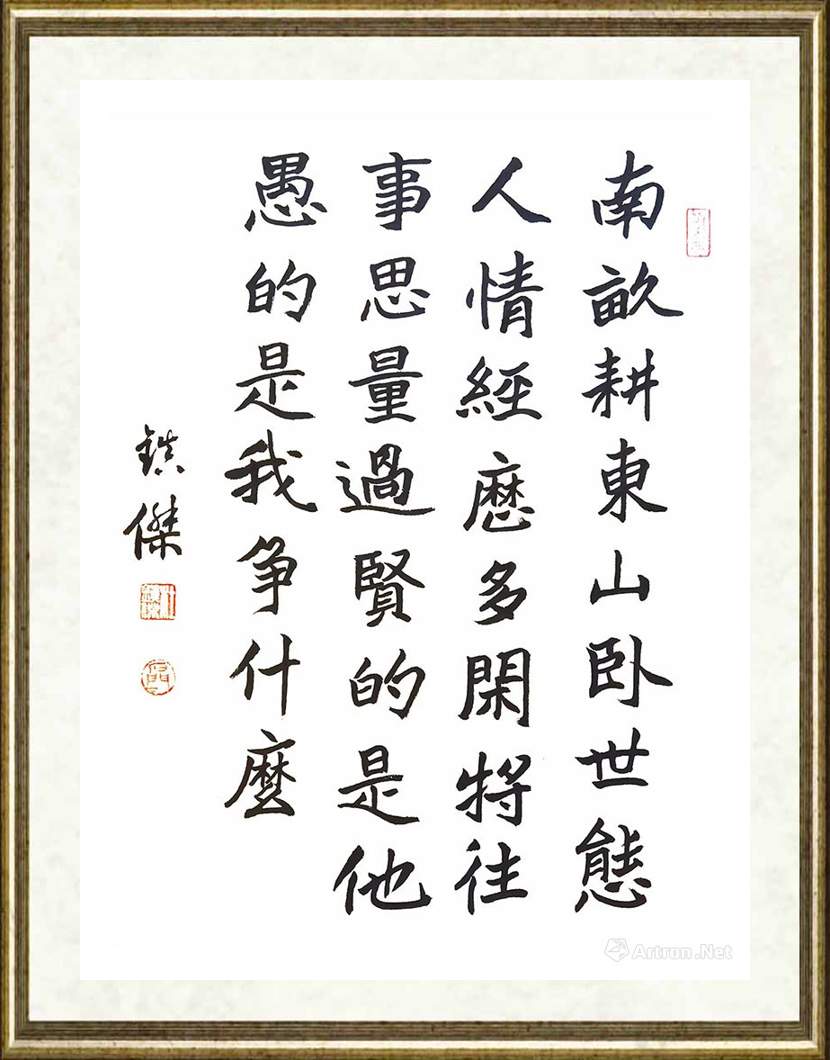 南畝耕東山卧世態
人情經歷多閑將往
事思量過賢的是他
愚的是我争什麼
鎮傑
Artron.Net